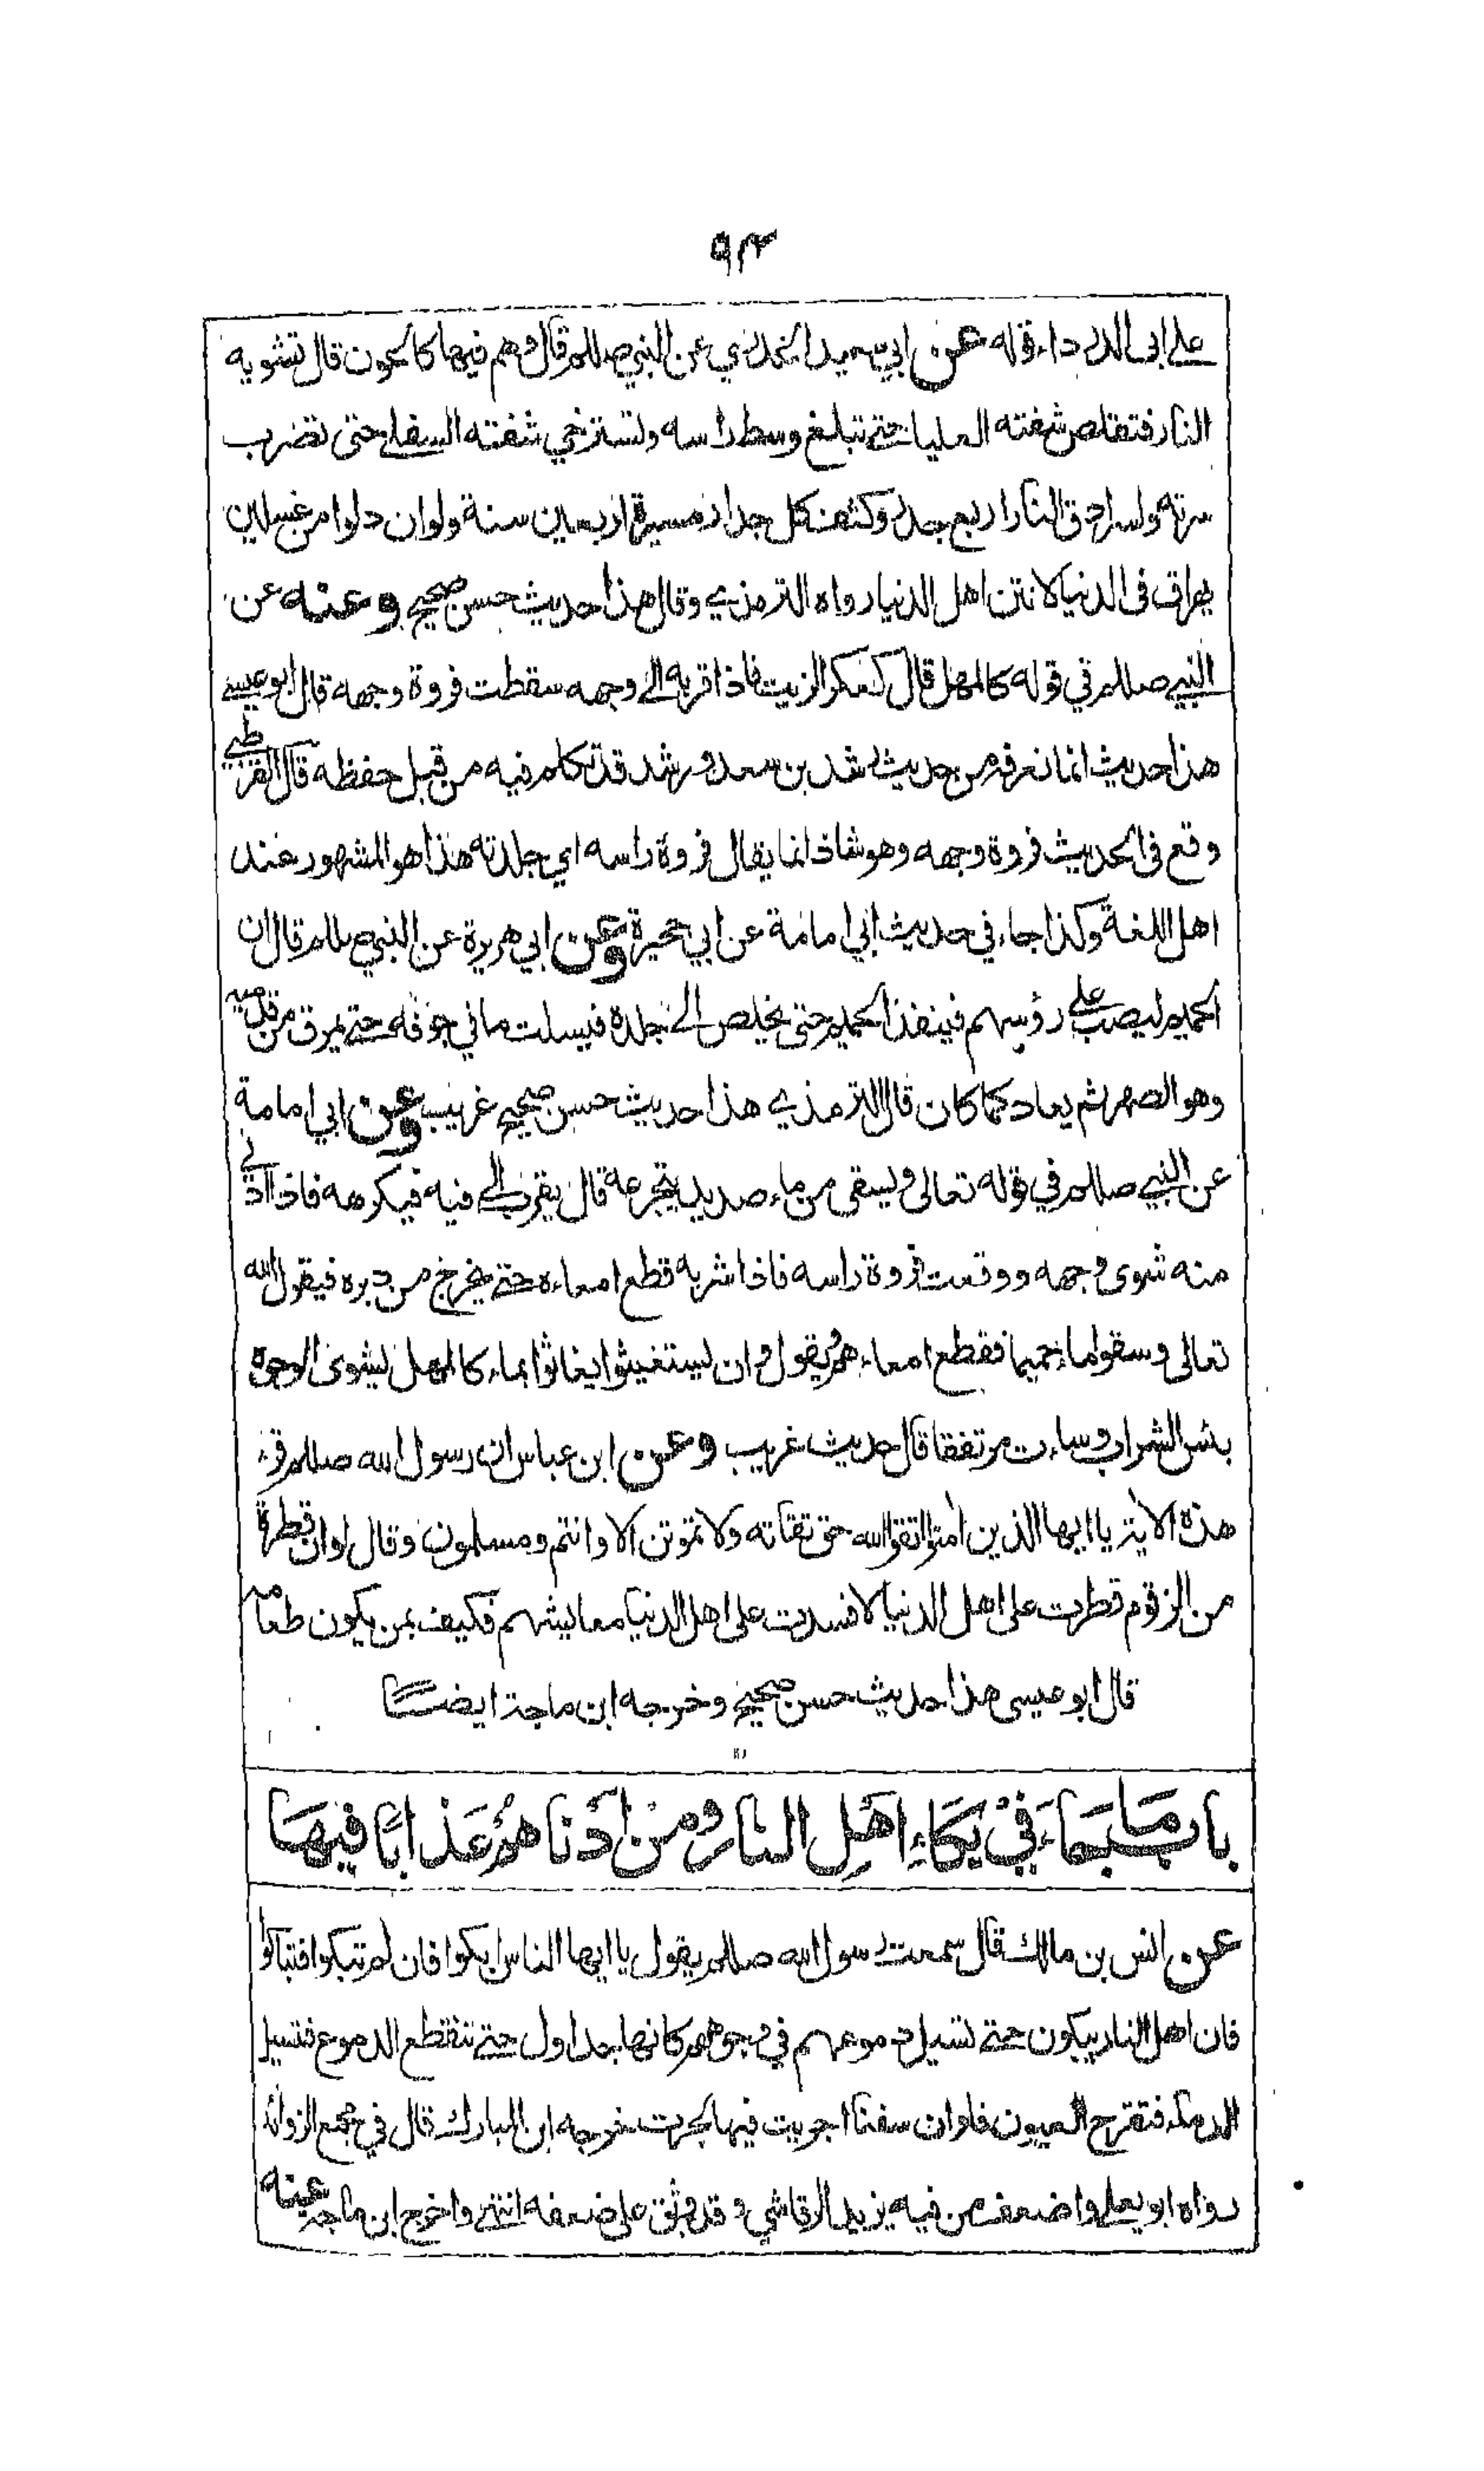 ٩٣
على ابى الدرداء قوله عن ابي سعيد الخدري عن النبي صللم قال وهم فيها كالحون قال تشويه
النار فتقلص شفته العليا حتى تبلغ وسط راسه وتسترخي شفته السفلى حتى تضرب
سرته ولسرادق النار اربع جدر وكثف كل جدار مسيرة اربعين سنة ولو ان دلوا من غسلين
يهراق فى الدنيا لانتن اهل الدنيا رواه الترمذي وقال هذا حديث حسن صحيح وعنه عن
النبي صللم في قوله كالمهل قال كعكر الزيت فاذا قربه الى وجهه سقطت فروة وجهه قال ابو عيسى
هذا حديث انما نعرفه من حديث رشد بن سعد ورشد قد تكلم فيه من قبل حفظه قال القرطبي
وقع فى الحديث فروة وجهه وهو شاذ انما يقال فروة راسه اي جلدته هذا هو المشهور عند
اهل اللغة وكذا جاء في حديث ابي امامة عن ابي حجيرة وعن ابي هريرة عن النبي صللم قال ان
الحميم ليصب على رؤسهم فينفذ الحميم حتى يخلص الى جلدة فيسلت ما في جوفه حتى يمرق من قدميه
وهو الصهر ثم يعاد كما كان قال الترمذي هذا حديث حسن صحيح غريب وعن ابي امامة
عن النبي صللم في قوله تعالى ويسقى من ماء صديد يتجرعه قال يقرب الى فيه فيكرهه فاذا ادنى
منه شوى وجهه ووقعت فروة راسه فاذا شربه قطع امعاءه حتى يخرج من دبره فيقول الله
تعالى وسقوا ماء حميما فقطع امعاءهم ويقول وان يستغيثوا يغاثوا بماء كالمهل يشوى الوجوه
بئس الشراب وساءت مرتفقا قال حديث غريب وعن ابن عباس ان رسول الله صللم قرء
هذه الآية يا ايها الذين امنوا اتقوا الله حق تقاته ولا تموتن الا وانتم ومسلمون وقال لو ان قطرة
من الزقوم قطرت على اهل الدنيا لافسدت على اهل الدنيا معايشهم فكيف بمن يكون طعامه
قال ابو عيسى هذا حديث حسن صحيح وخرجه ابن ماجة ايضا
باب ما جاء في بكاء اهل النار ومن ادناهم عذابا فيها
عن انس بن مالك قال سمعت رسول الله صللم يقول يا ايها الناس ابكوا فان لم تبكوا فتباكوا
فان اهل النار يبكون حتى تسيل دموعهم في وجوههم كانها جداول حتى تنقطع الدموع فتسيل
الدماء فتقرح العيون فلو ان سفنا اجريت فيها لجرت خرجه ابن المبارك قال في مجمع الزوائد
رواه ابو يعلى واضعف من فيه يزيد الرقاشي وقد وثق على ضعفه انتهى واخرج ابن ماجه عنه